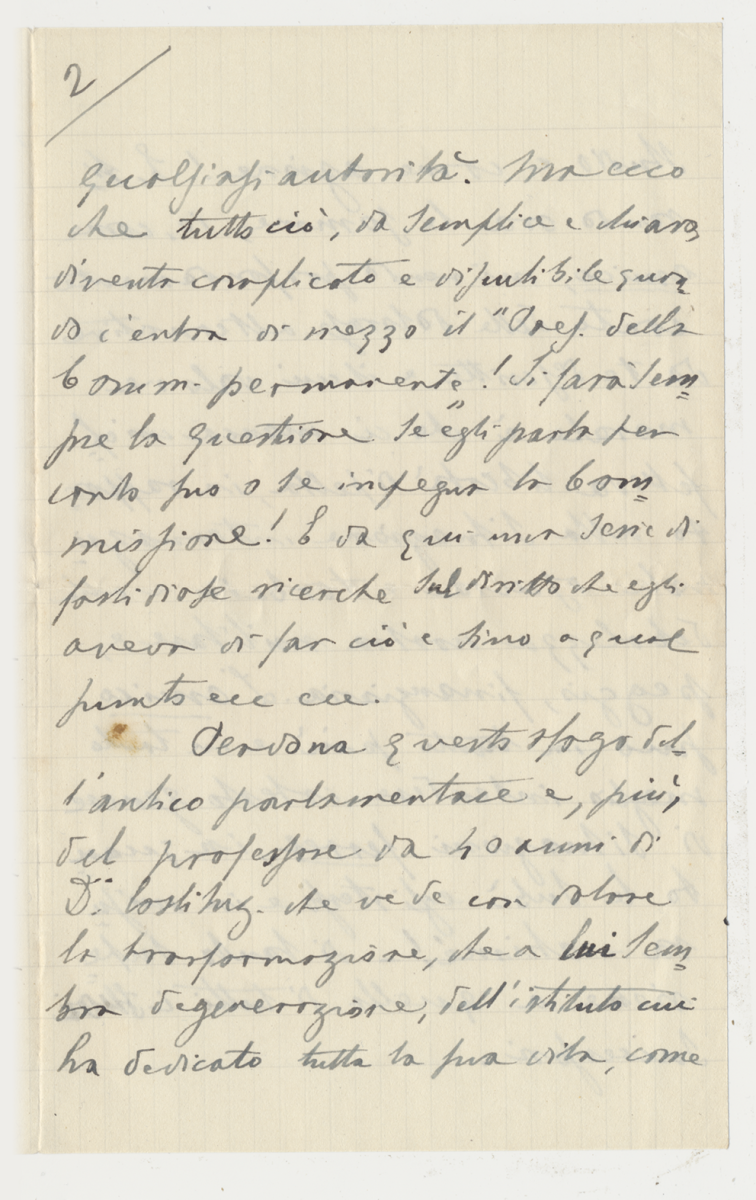 2/
qualsiasi autorità. Ma ecco
che tutto ciò, da semplice e chiaro,
diventa complicato e discutibile quan=
do c'entra di mezzo il "Pres. della
Comm. permanente"! Si farà sem=
pre la questione se egli parla per
conto suo o se impegna la Com=
missione! E da qui una serie di
fastidiose ricerche sul diritto che egli
aveva di far ciò e sino a qual
punto ecc ecc.
Perdona questo sfogo del=
l'antico parlamentare e, più,
del professore da 40 anni di
D.º Costituz. che vede con dolore
la trasformazione, che a lui sem=
bra degenerazione, dell'istituto cui
ha dedicato tutta la sua vita, come